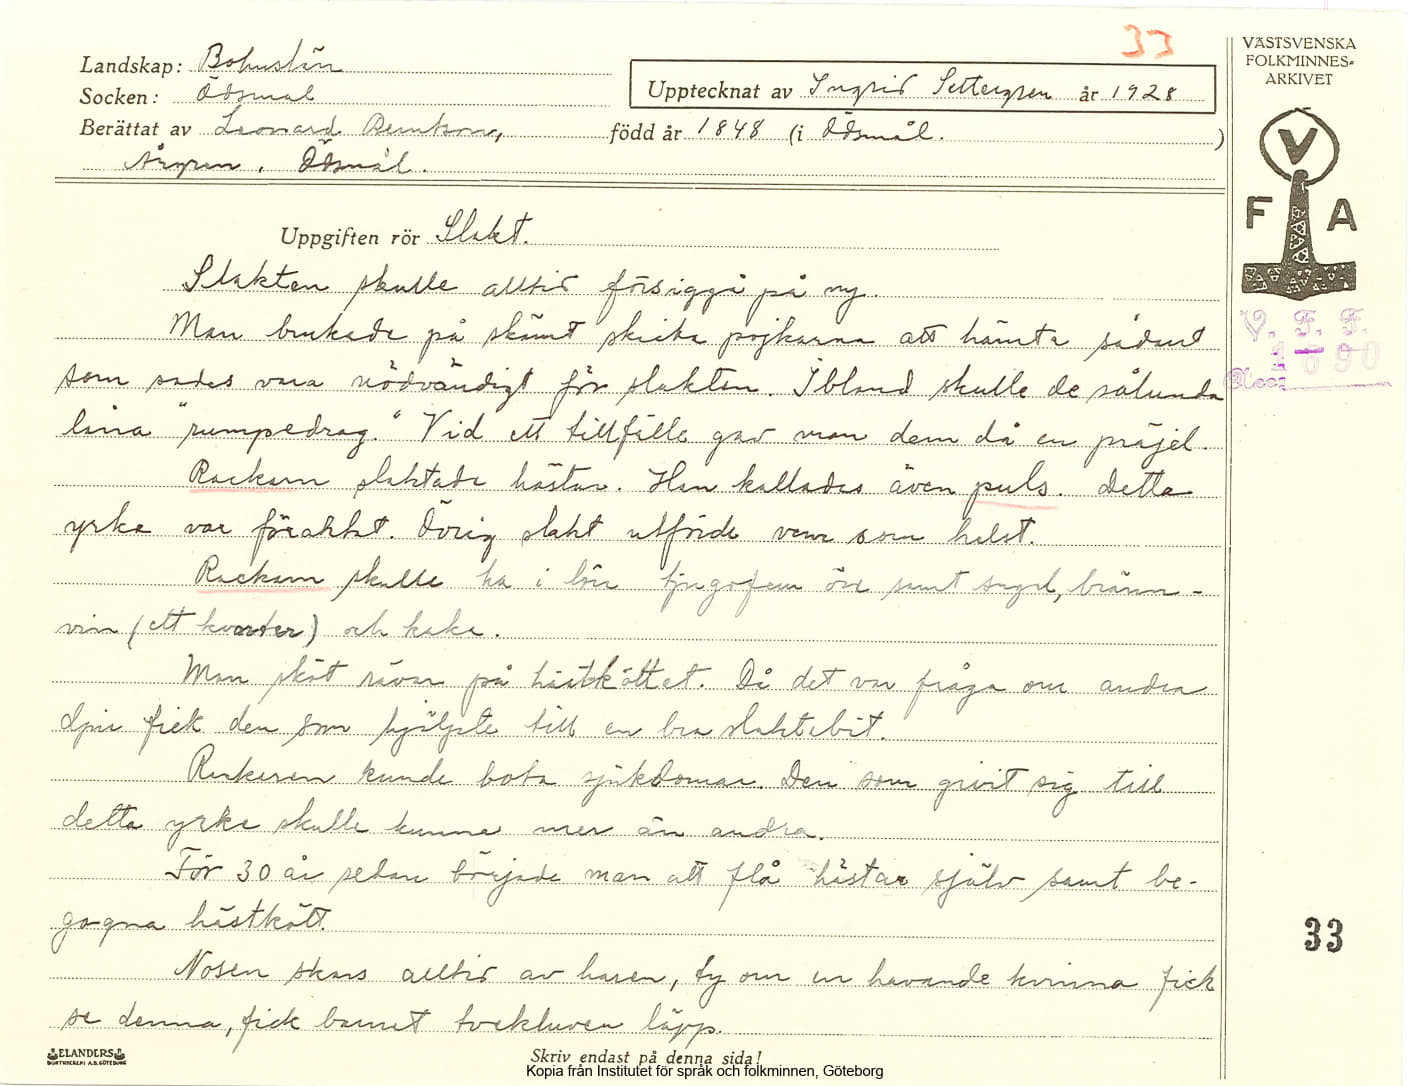 33
VÄSTSVENSKA
FOLKMINNES-
ARKIVET
Landskap: Bohuslän
Socken: Ödsmål
Upptecknat av Ingrid Settergren år 1928
Berättat av Leonard Berntson, född år 1848 (i Ödsmål.)
Ödsmål.
V
F A
Uppgiften rör Slakt.
Slakten skulle alltid försiggå på ny.
V. F. F.
1690
Man brukade på skämt skicka pojkarna att hämta sådant
som sades vara nödvändigt för slakten. Ibland skulle de sålunda
låna "rumpedrag." Vid ett tillfälle gav man dem då en präjel.
Rackarn slaktade hästar. Han kallades även puls. Detta
yrke var föraktat. Övrig slakt utförde vem som helst.
Rackarn skulle ha i lön tjugofem öre samt sugel, bränn-
vin (ett kvarter) och kaka.
Man sköt rävar på hästköttet. Då det var fråga om andra
djur fick den som hjälpte till en bra slaktebit.
Rackaren kunde bota sjukdomar. Den som givit sig till
detta yrke skulle kunna mer än andra.
För 30 år sedan började man att flå hästar själv samt be-
gagna hästkött.
33
Nosen skars alltid av haren, ty om en havande kvinna fick
se denna, fick barnet tvekluven läpp.
ELANDERS
BOKTRYCKERI A.B. GÖTEBORG
Skriv endast på denna sida!
Kopia från Institutet för språk och folkminnen, Göteborg